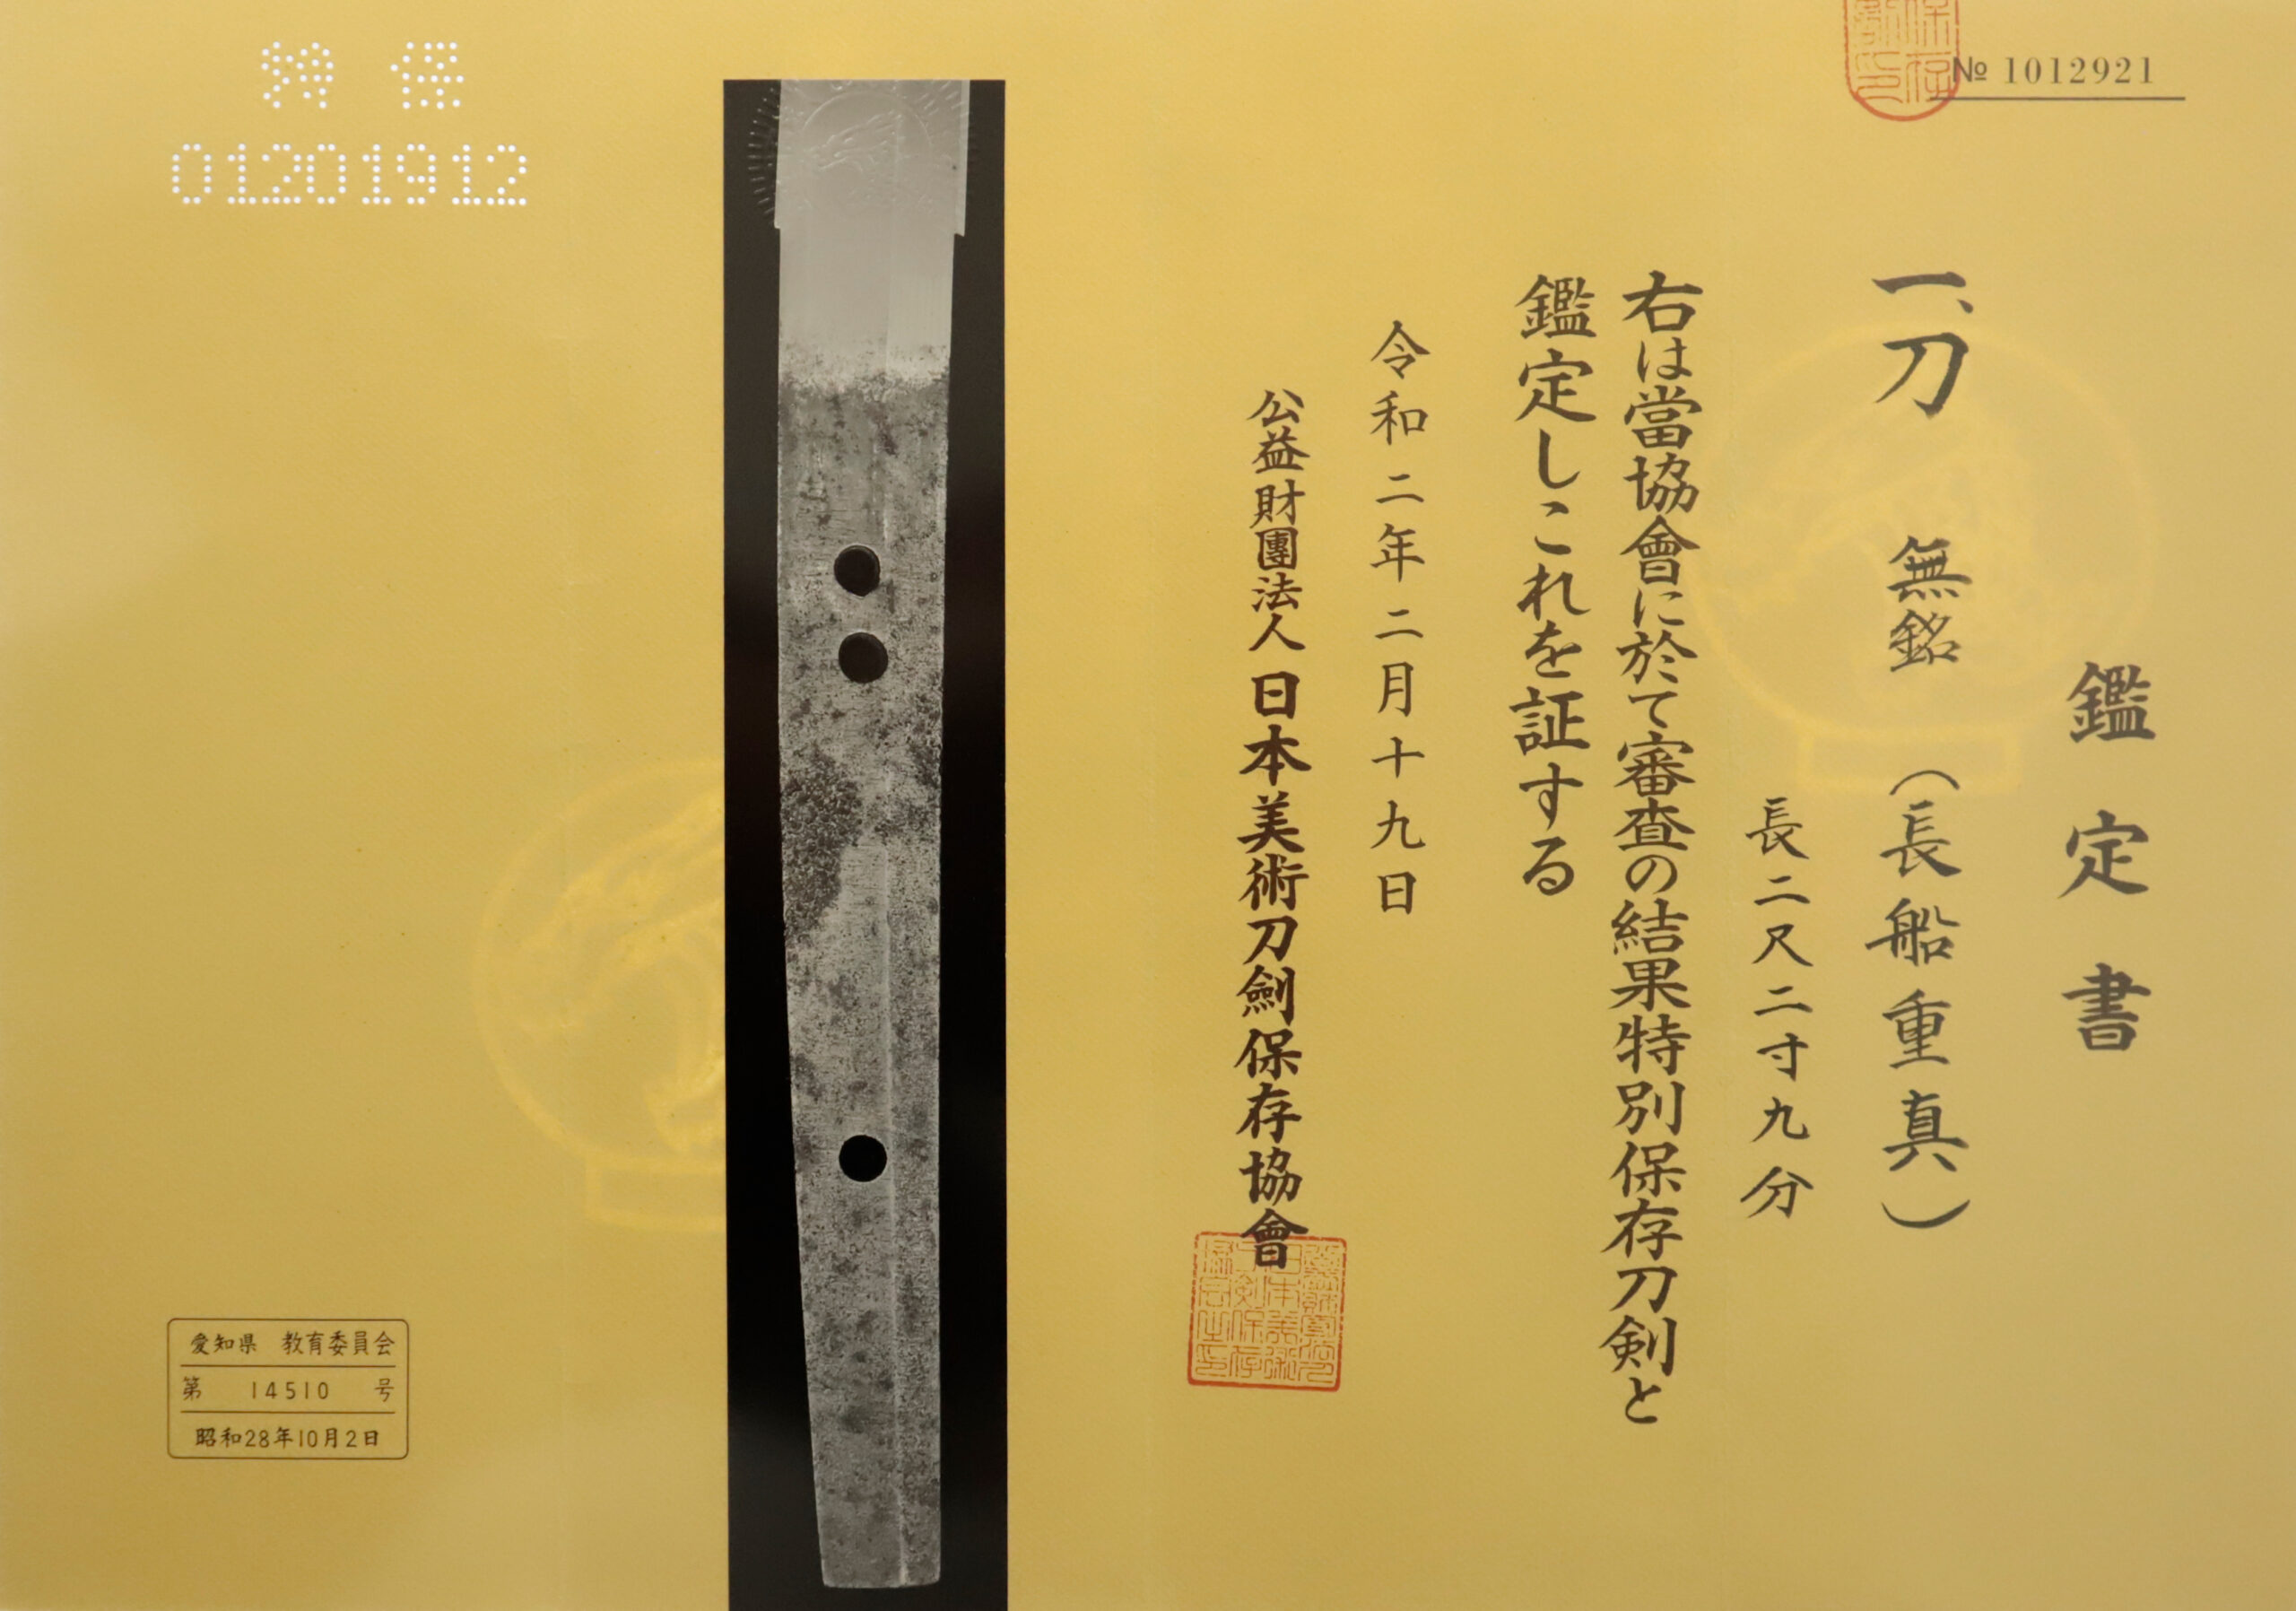 № 1012921
鑑定書
一、刀 無銘（長船重真）
長二尺二寸九分
右は當協會に於て審査の結果特別保存刀剣と
鑑定しこれを証する
令和二年二月十九日
公益財團法人日本美術刀劍保存協會
特保
01201912
愛知県 教育委員会
第 14510 号
昭和28年10月2日